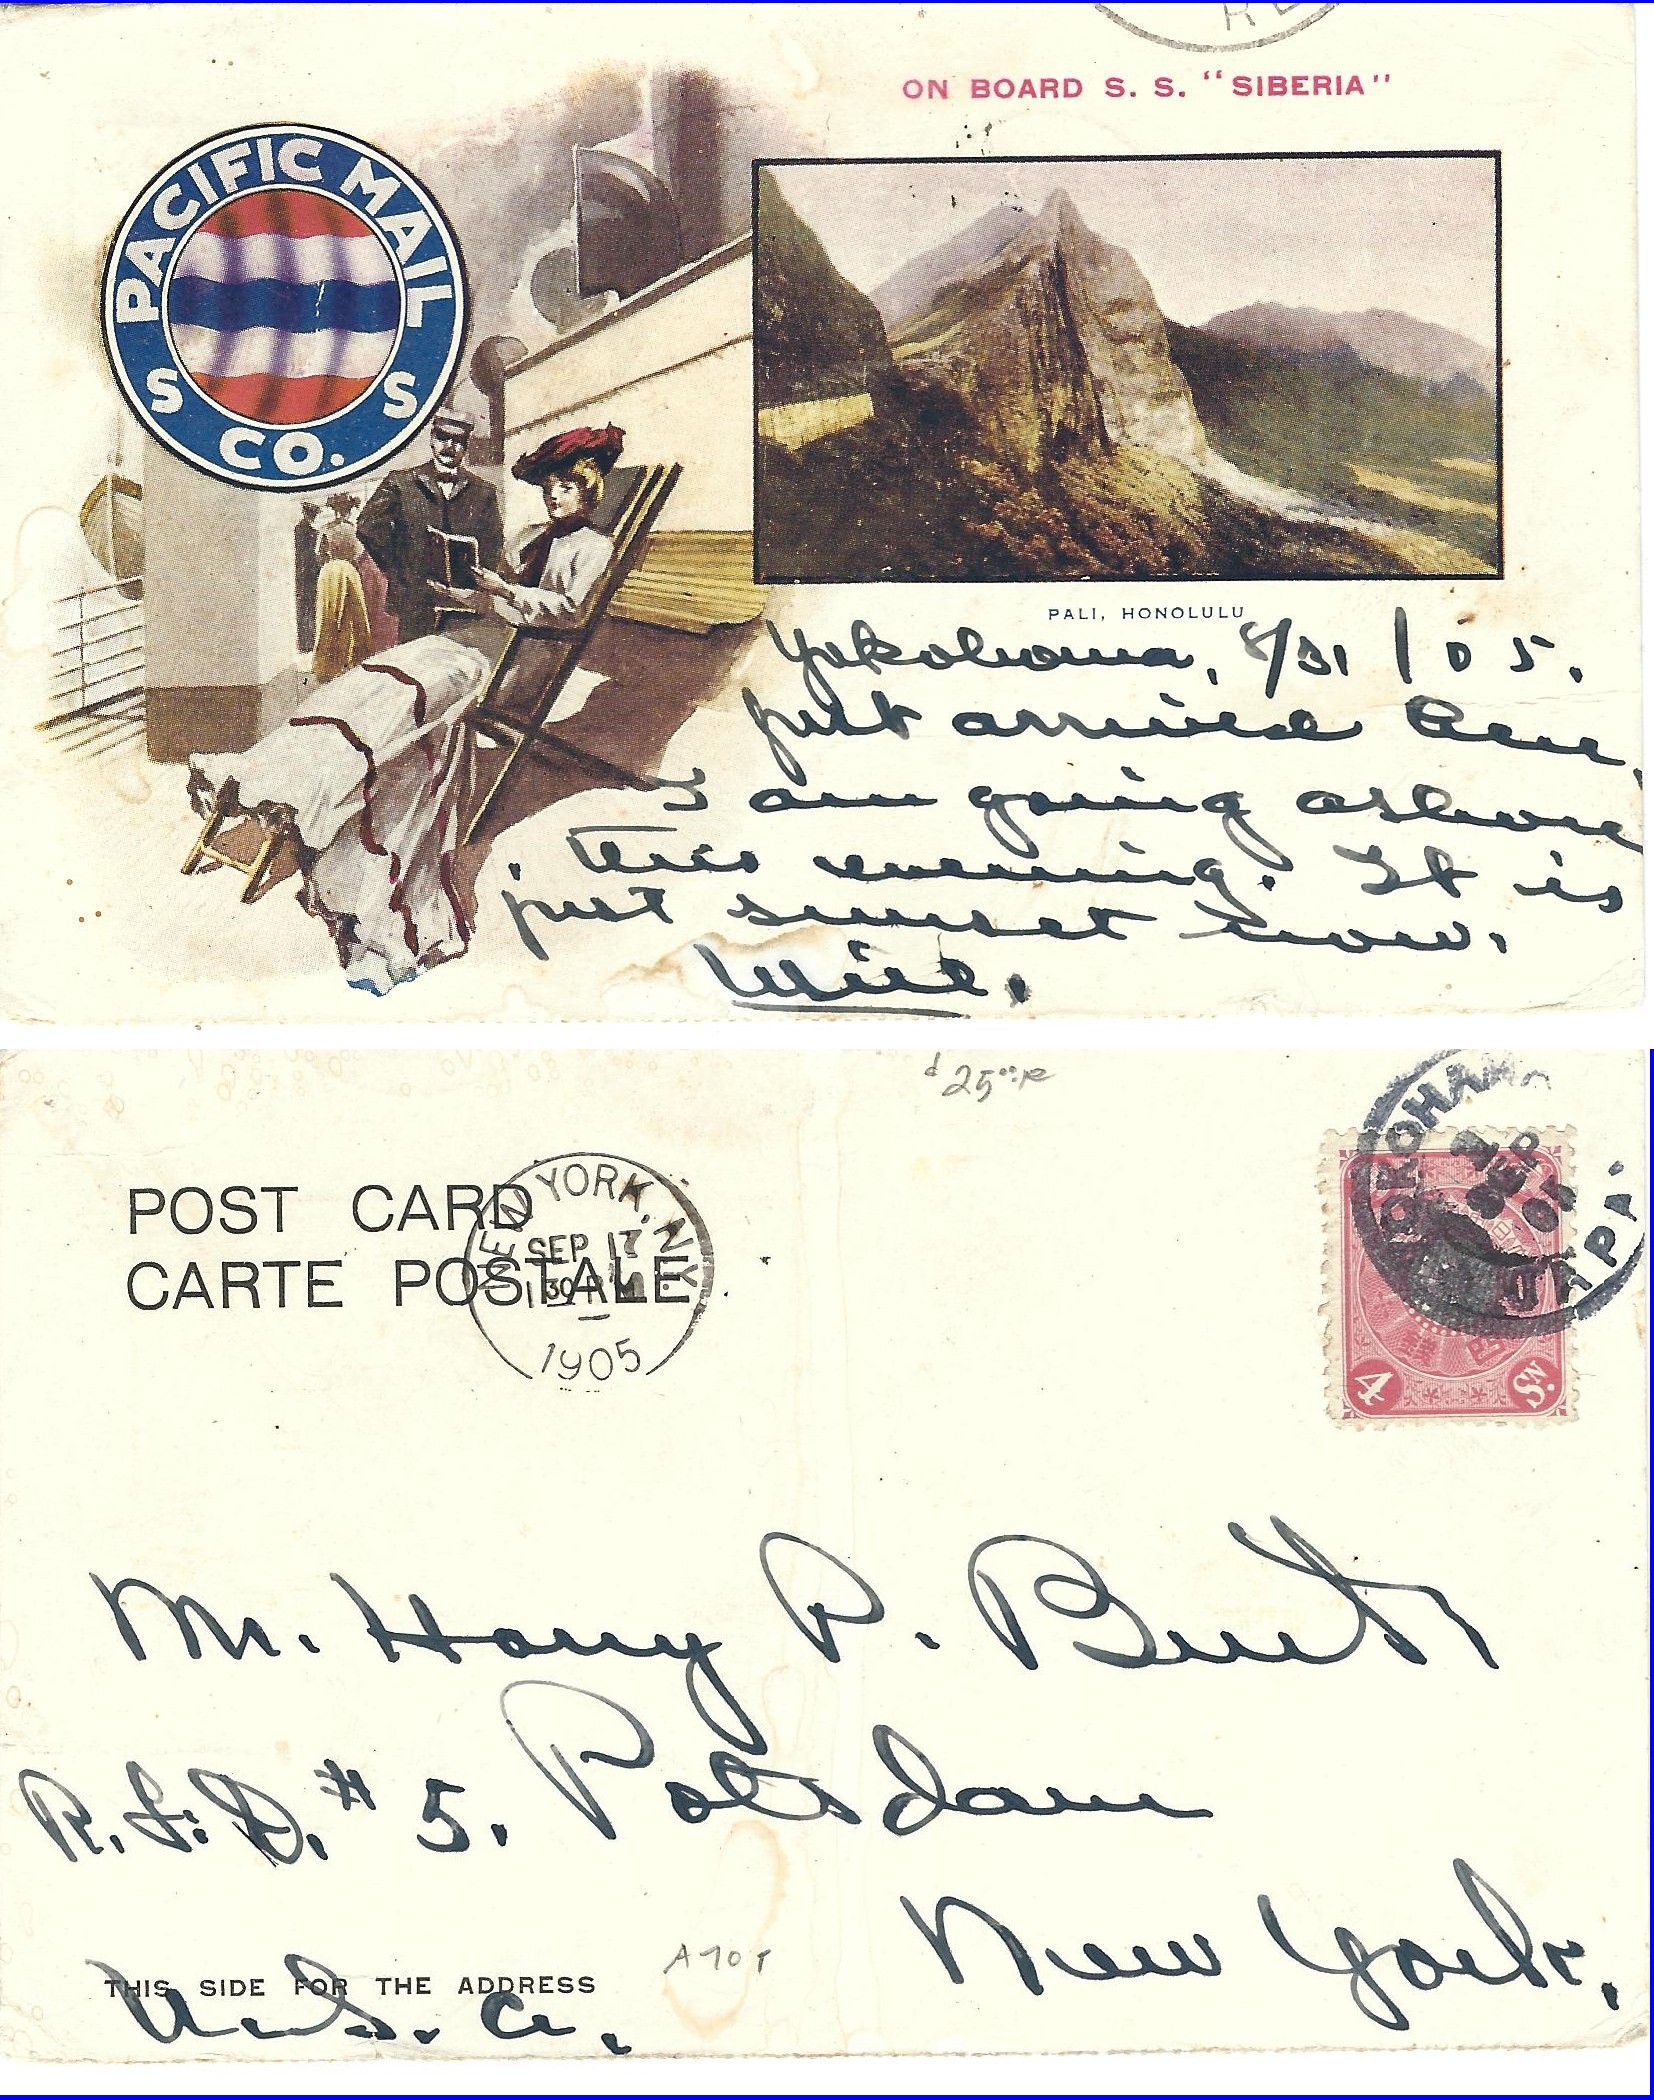 ON BOARD S. S. "SIBERIA"
PACIFIC MAIL
S S
CO.
PALI, HONOLULU
Yokohama, 8/31/05.
Just arrived here,
I am going ashore
this evening. It is
just sunset now.
$25
POST CARD
CARTE POSTALE
NEW YORK, N.Y.
SEP 17
1 30 PM
1905
YOKOHAMA
SEP
05
JAPAN
4 Sn.
Mr. Harry P. Burt
R.F.D. # 5. Potsdam
New York.
A 70
THIS SIDE FOR THE ADDRESS
U.S.A.